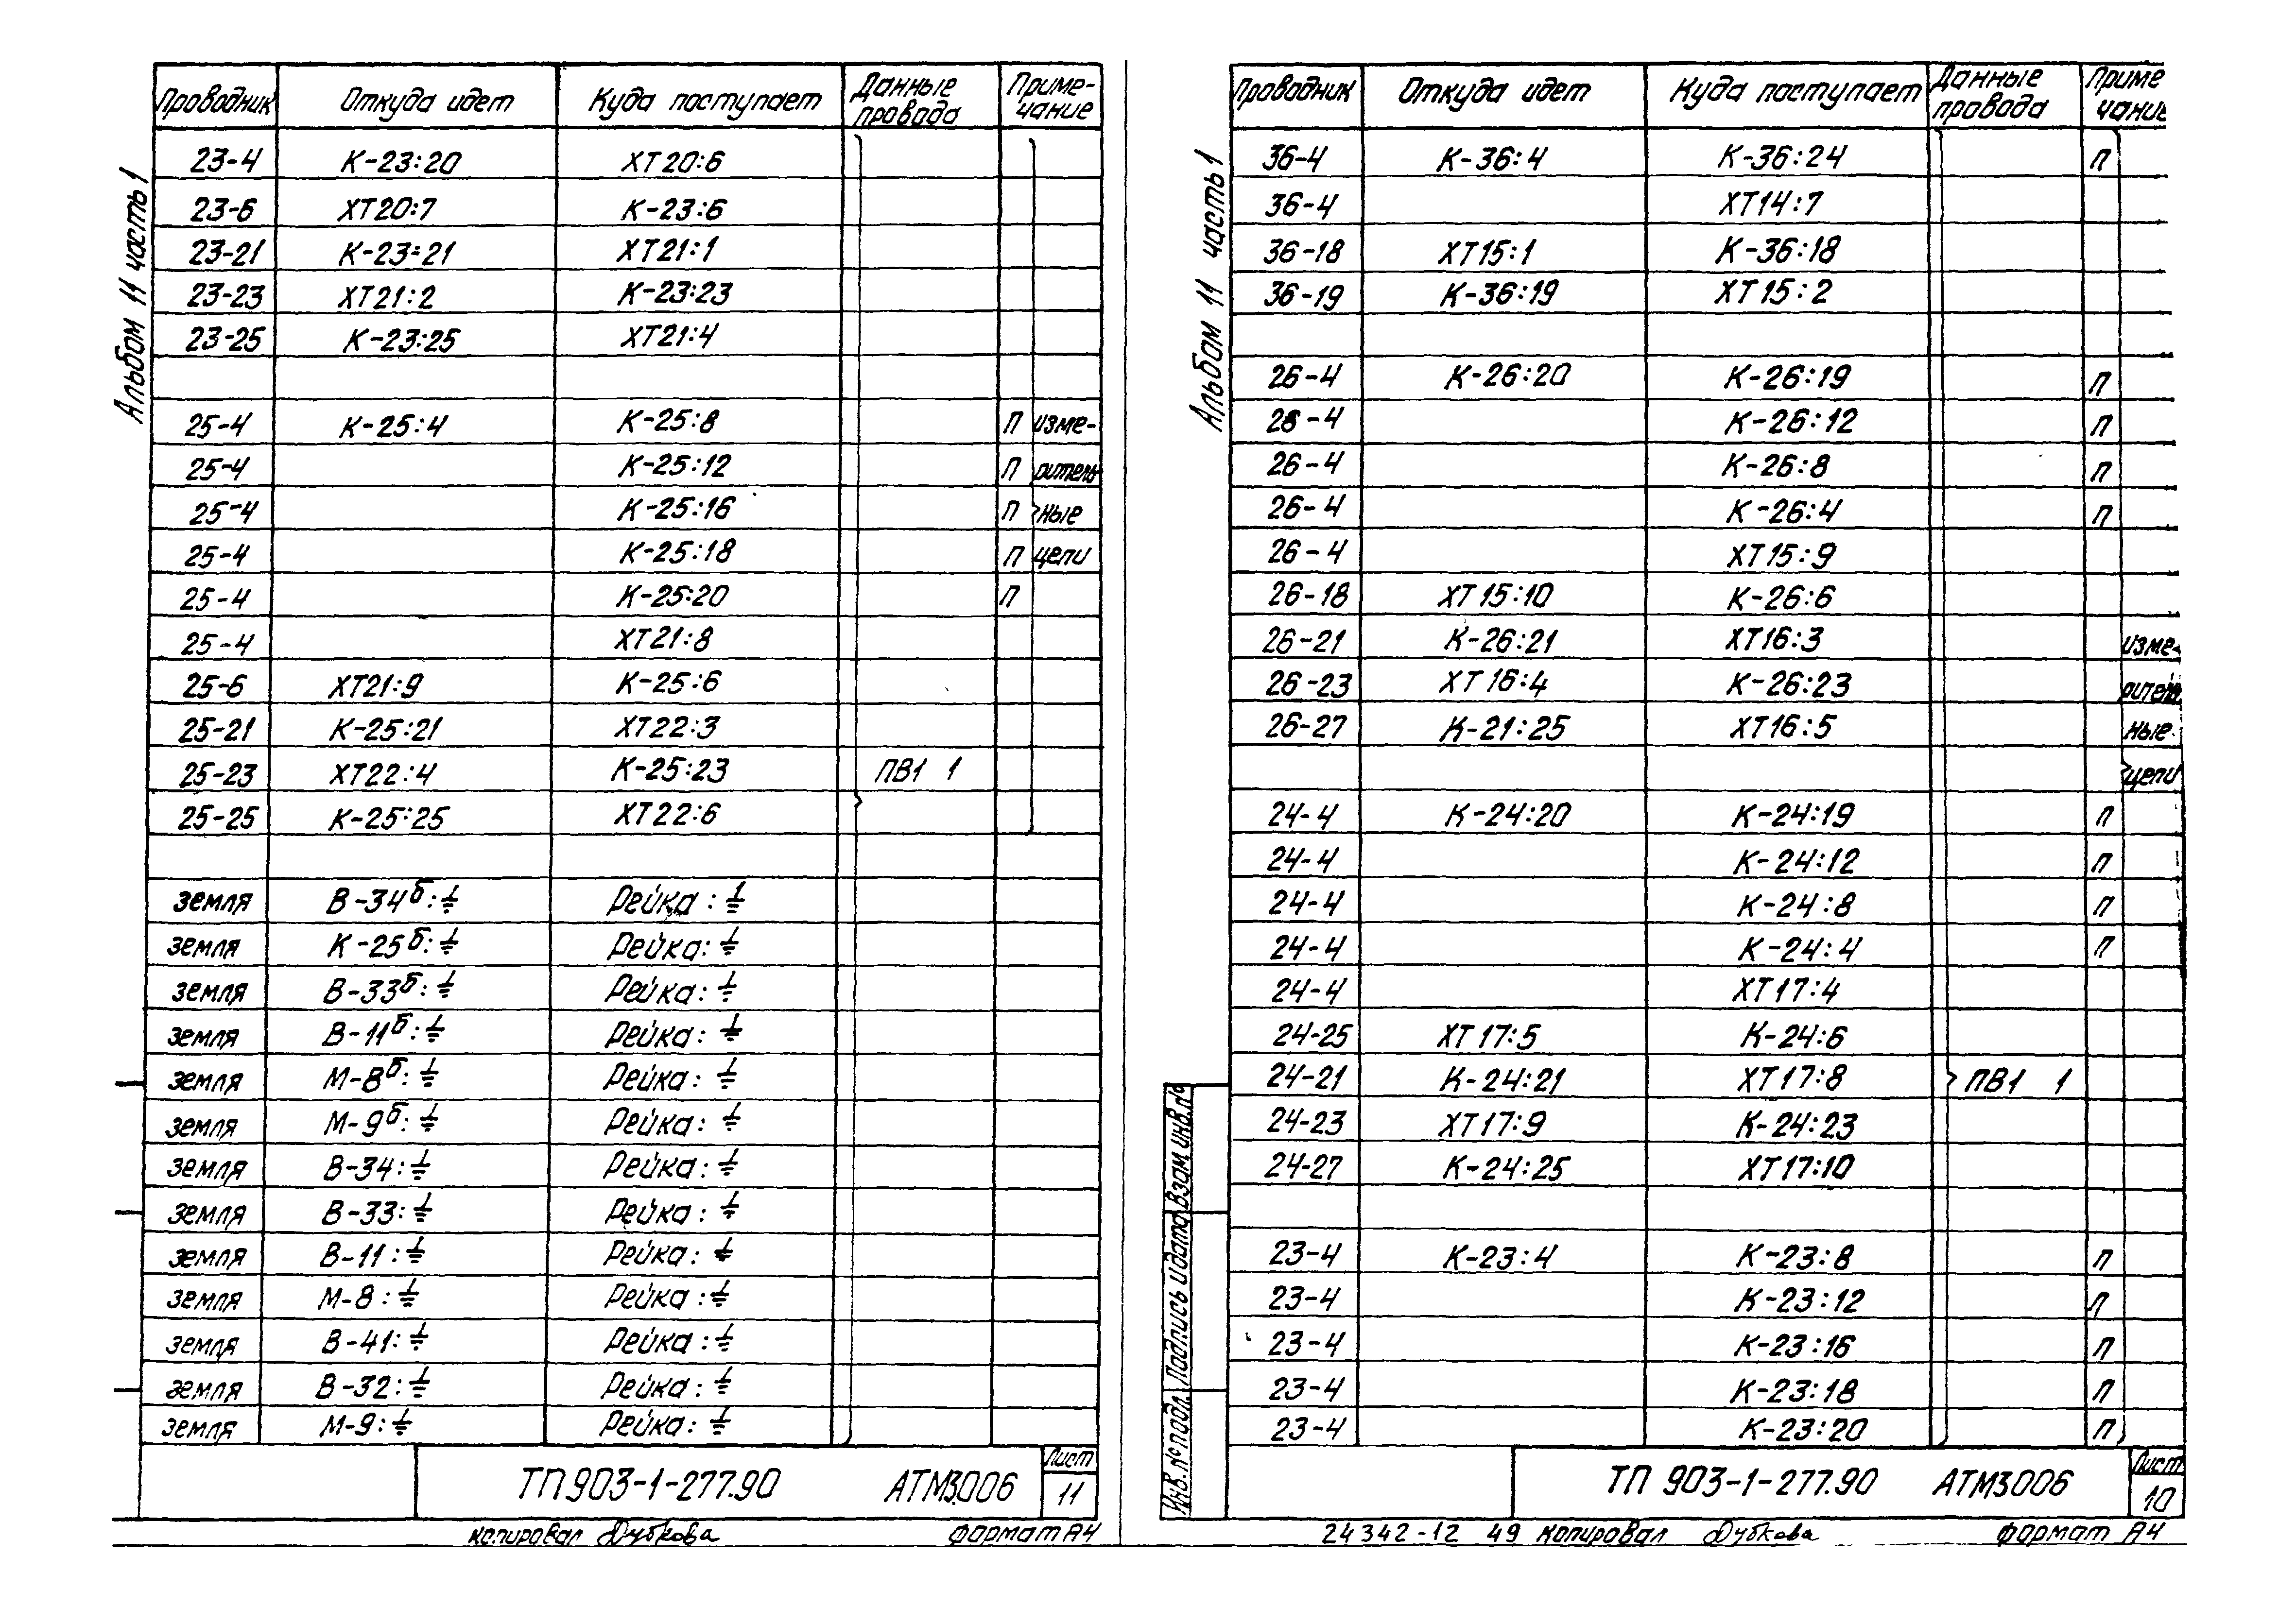 Альбом 11 часть 1
Проводник Откуда идет Куда поступает Данные провода Приме-чание
23-4 К-23:20 ХТ20:6
23-6 ХТ20:7 К-23:6
23-21 К-23:21 ХТ21:1
23-23 ХТ21:2 К-23:23
23-25 К-23:25 ХТ21:4
25-4 К-25:4 К-25:8 П изме-
25-4 К-25:12 П ритель
25-4 К-25:16 П ные
25-4 К-25:18 П цепи
25-4 К-25:20 П
25-4 ХТ21:8
25-6 ХТ21:9 К-25:6
25-21 К-25:21 ХТ22:3
25-23 ХТ22:4 К-25:23 ПВ1 1
25-25 К-25:25 ХТ22:6
земля В-34б:⏚ Рейка:⏚
земля К-25б:⏚ Рейка:⏚
земля В-33б:⏚ Рейка:⏚
земля В-11б:⏚ Рейка:⏚
земля М-8б:⏚ Рейка:⏚
земля М-9б:⏚ Рейка:⏚
земля В-34:⏚ Рейка:⏚
земля В-33:⏚ Рейка:⏚
земля В-11:⏚ Рейка:⏚
земля М-8:⏚ Рейка:⏚
земля В-41:⏚ Рейка:⏚
земля В-32:⏚ Рейка:⏚
земля М-9:⏚ Рейка:⏚
ТП 903-1-277.90 АТМ3.006 Лист 11
копировал Дубкова формат А4
Альбом 11 часть 1
Проводник Откуда идет Куда поступает Данные провода Приме чание
36-4 К-36:4 К-36:24 П
36-4 ХТ14:7
36-18 ХТ15:1 К-36:18
36-19 К-36:19 ХТ15:2
26-4 К-26:20 К-26:19 П
26-4 К-26:12 П
26-4 К-26:8 П
26-4 К-26:4 П
26-4 ХТ15:9
26-18 ХТ15:10 К-26:6
26-21 К-26:21 ХТ16:3 изме-
26-23 ХТ16:4 К-26:23 ритель
26-27 К-21:25 ХТ16:5 ные
цепи
24-4 К-24:20 К-24:19 П
24-4 К-24:12 П
24-4 К-24:8 П
24-4 К-24:4 П
24-4 ХТ17:4
24-25 ХТ17:5 К-24:6
24-21 К-24:21 ХТ17:8 ПВ1 1
24-23 ХТ17:9 К-24:23
24-27 К-24:25 ХТ17:10
23-4 К-23:4 К-23:8 П
23-4 К-23:12 П
23-4 К-23:16 П
23-4 К-23:18 П
23-4 К-23:20 П
Инв.№ подл. Подпись и дата Взам.инв.№
ТП 903-1-277.90 АТМ3.006 Лист 10
24342-12 49 копировал Дубкова формат А4